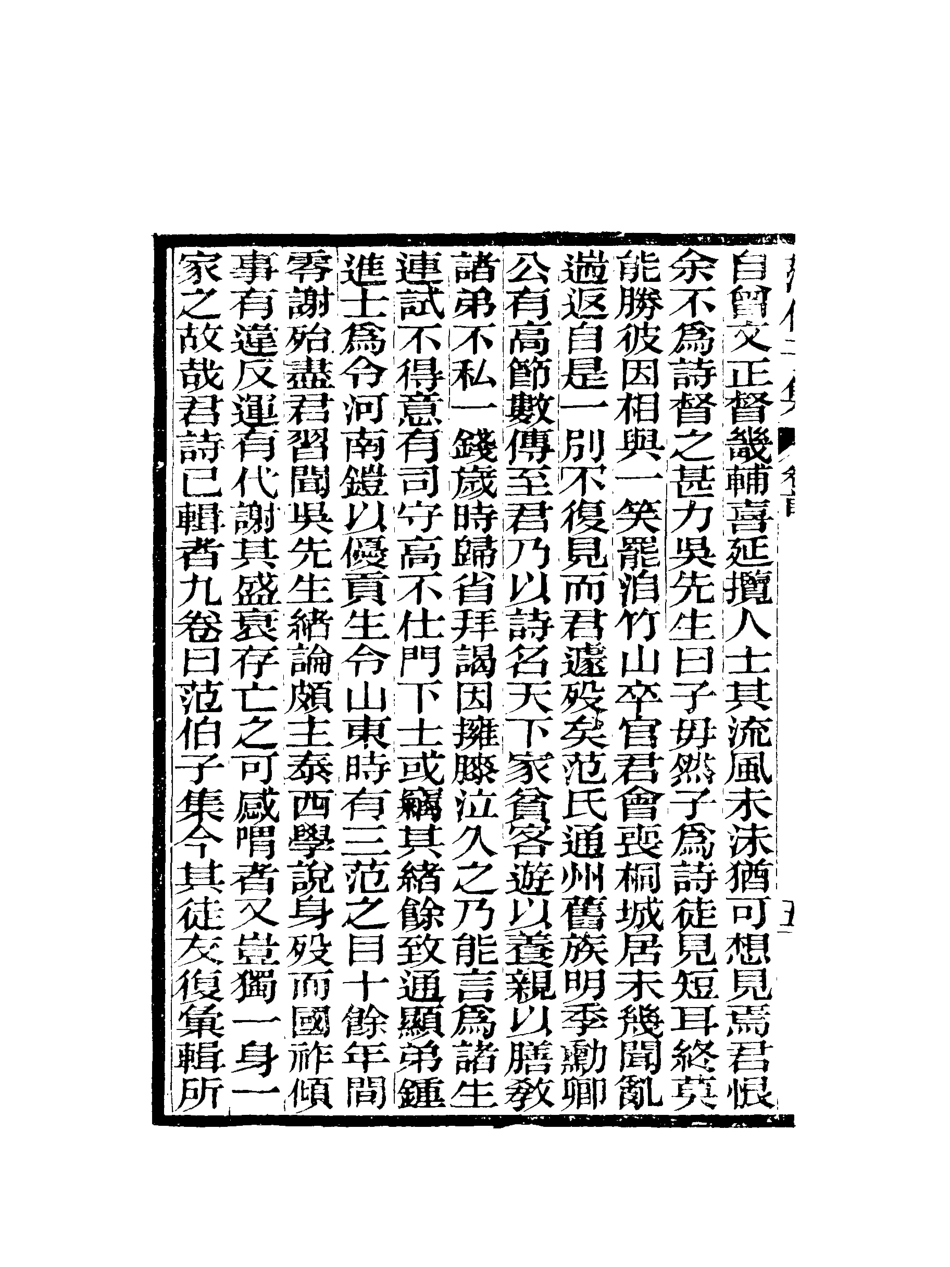 自曾文正督畿輔喜延攬人士其流風未沬猶可想見焉君恨
余不爲詩督之甚力吳先生曰子毋然子爲詩徒見短耳終莫
能勝彼因相與一笑罷洎竹山卒官君會喪桐城居未幾聞亂
遄返自是一別不復見而君遽歿矣范氏通州舊族明季勳卿
公有高節數傳至君乃以詩名天下家貧客遊以養親以膳教
諸弟不私一錢歲時歸省拜謁因擁膝泣久之乃能言爲諸生
連試不得意有司守高不仕門下士或竊其緒餘致通顯弟鍾
進士爲令河南鎧以優貢生令山東時有三范之目十餘年間
零謝殆盡君習聞吳先生緒論頗主泰西學說身歿而國祚傾
事有違反運有代謝其盛衰存亡之可感喟者又豈獨一身一
家之故哉君詩已輯者九卷曰范伯子集今其徒友復彙輯所